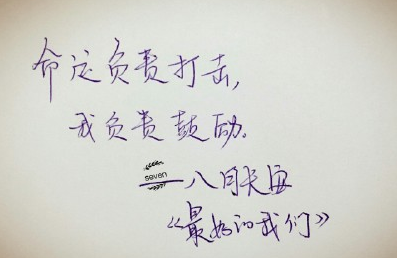 命运负责打击，
我负责鼓励。
seven
——八月长安
《最好的我们》